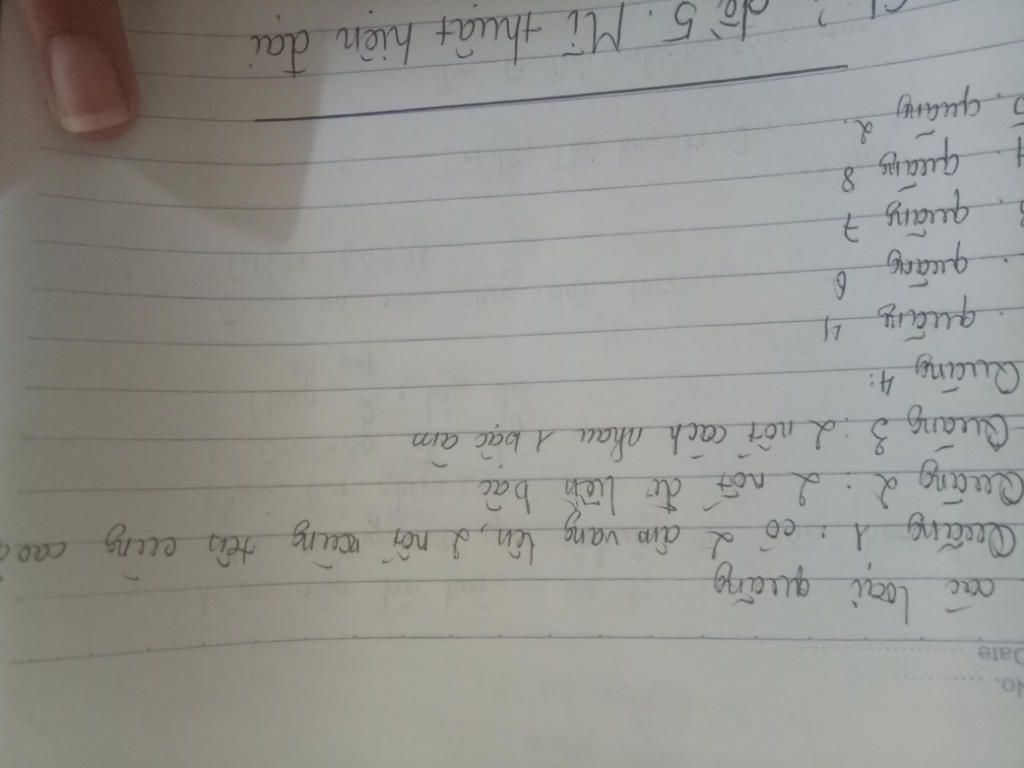 No. ..........
Date ..................
các loại quãng
Quãng 1 : có 2 âm vang lên, 2 nốt cùng tên cùng cao
Quãng 2 : 2 nốt đi liền bậc
Quãng 3 : 2 nốt cách nhau 1 bậc âm
Quãng 4 :
. quãng 4
. quãng 6
3. quãng 7
4. quãng 8
5. quãng 2.
đề 5. Mĩ thuật hiện đại